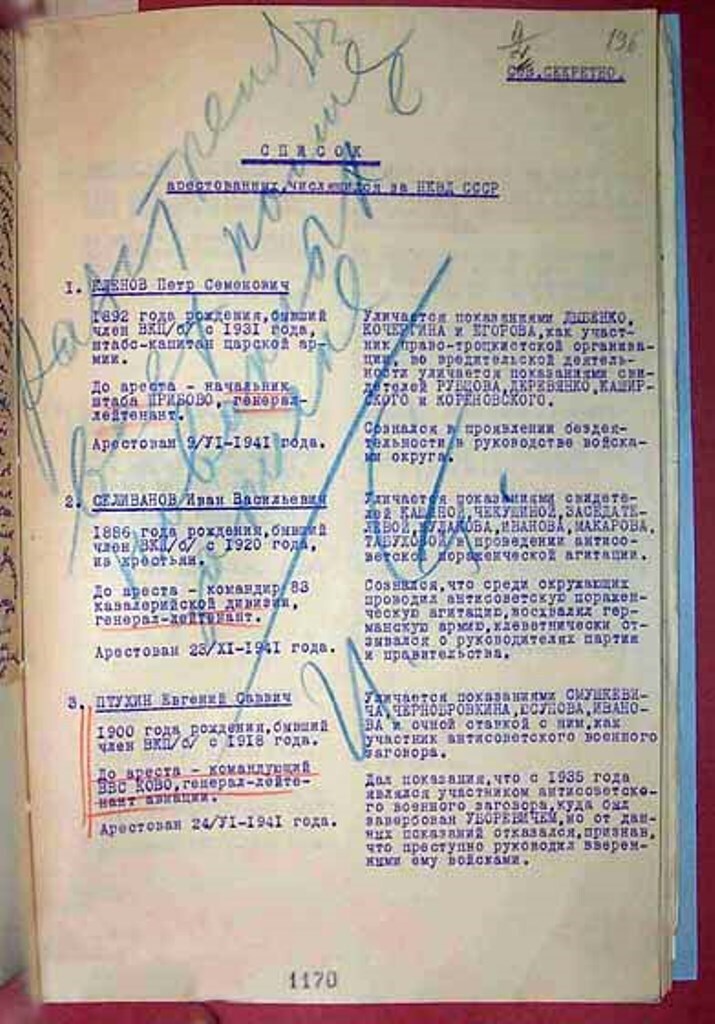 196
СОВ.СЕКРЕТНО.
СПИСОК
арестованных, числящихся за НКВД СССР
Расстрелять
всех поименованных
в списке.
И. Ст.
1. КЛЕНОВ Петр Семенович
1892 года рождения, бывший
член ВКП/б/ с 1931 года,
штабс-капитан царской ар-
мии.
До ареста - начальник
штаба ПРИБОВО, генерал-
лейтенант.
Арестован 9/VI-1941 года.
Уличается показаниями ДЫБЕНКО,
КОЧЕРГИНА и ЕГОРОВА, как участ-
ник право-троцкистской организа-
ции, во вредительской деятель-
ности уличается показаниями сви-
детелей РУБЦОВА, ДЕРЕВЯНКО, КАШИР-
СКОГО и КОРЕНОВСКОГО.
Сознался в проявлении бездея-
тельности в руководстве войска-
ми округа.
2. СЕЛИВАНОВ Иван Васильевич
1886 года рождения, бывший
член ВКП/б/ с 1920 года,
из крестьян.
До ареста - командир 83
кавалерийской дивизии,
генерал-лейтенант.
Арестован 23/XI-1941 года.
Уличается показаниями свидете-
лей ЧЕКУШИНОЙ, ЗАСЕДАТЕ-
ЛЕВОЙ, КУЛАКОВА, ИВАНОВА, МАКАРОВА,
ТАБУХОВОЙ в проведении антисо-
ветской пораженческой агитации.
Сознался, что среди окружающих
проводил антисоветскую поражен-
ческую агитацию, восхвалял гер-
манскую армию, клеветнически от-
зывался о руководителях партии
и правительства.
3. ПТУХИН Евгений Саввич
1900 года рождения, бывший
член ВКП/б/ с 1918 года.
До ареста - командующий
ВВС КОВО, генерал-лейте-
нант авиации.
Арестован 24/VI-1941 года.
Уличается показаниями СМУШКЕВИ-
ЧА, ЧЕРНОБРОВКИНА, ЮСУПОВА, ИВАНО-
ВА и очной ставкой с ним, как
участник антисоветского военного
заговора.
Дал показания, что с 1935 года
являлся участником антисоветско-
го военного заговора, куда был
завербован УБОРЕВИЧЕМ, но от дан-
ных показаний отказался, признав,
что преступно руководил вверен-
ными ему войсками.
1170